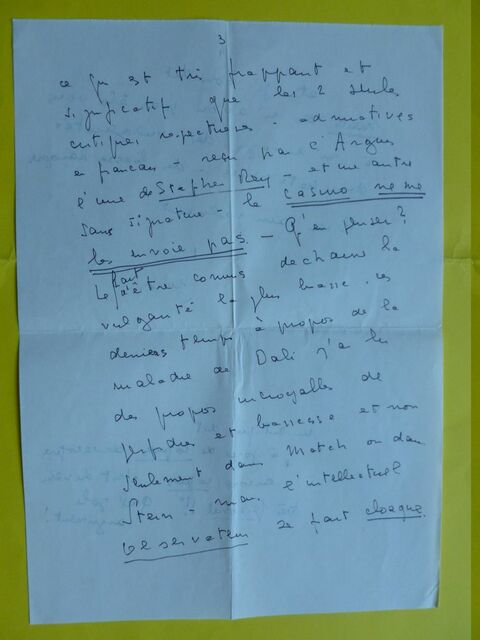 3
ce qui est très frappant et
significatif que les 2 seules
critiques respectueuses - admiratives
en français - reçu par l'Argus
l'une de Stephen Rey - et une autre
sans signature - le casino ne me
les envoie pas - Qu'en penser?
Le fait d'être connus déchaine la
vulgarité la plus basse. Ces
derniers temps à propos de la
maladie de Dali j'ai lu
des propos incroyables de
perfidie et bassesse et non
seulement dans Match ou dans
Stern - mais l'intellectuel
Observateur se fait cloaque.